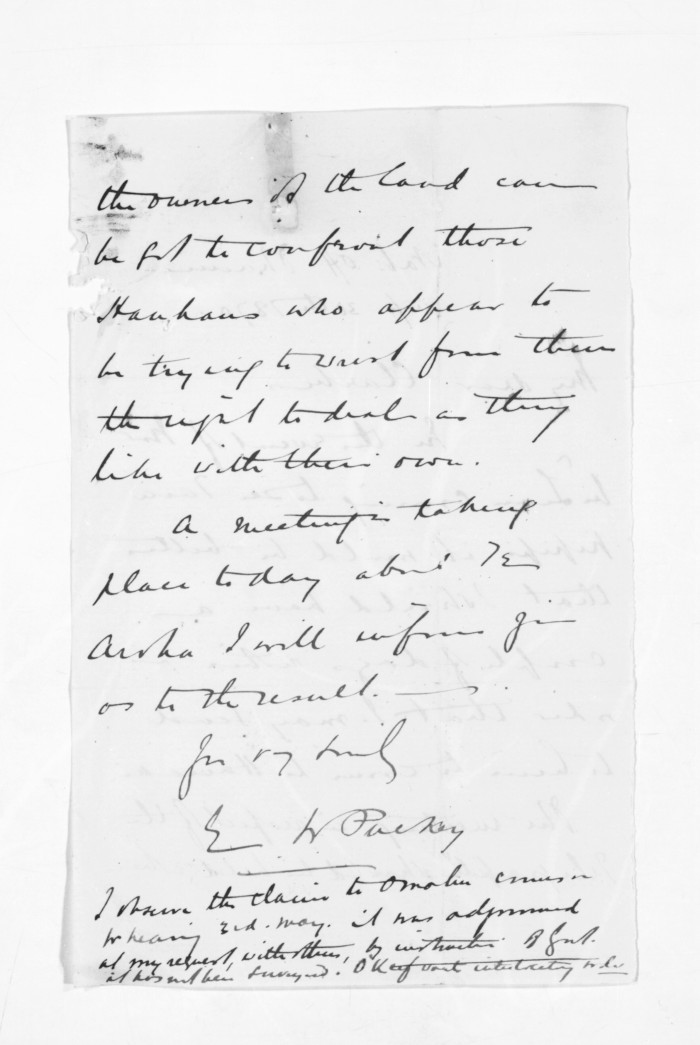 the owners of the land can
be got to confront those
Hauhaus who appear to
be trying to wrest from them
the right to deal as they
like with their own.
A meeting is taking
place today about Te
Aroha I will inform you
as to the result. —
Yrs vy truly
E W Puckey
I observe the claim to Omahu comes on
for hearing 3rd. May. it was adjourned
at my request, with others, by instruction of Govt.
it has not been surveyed.